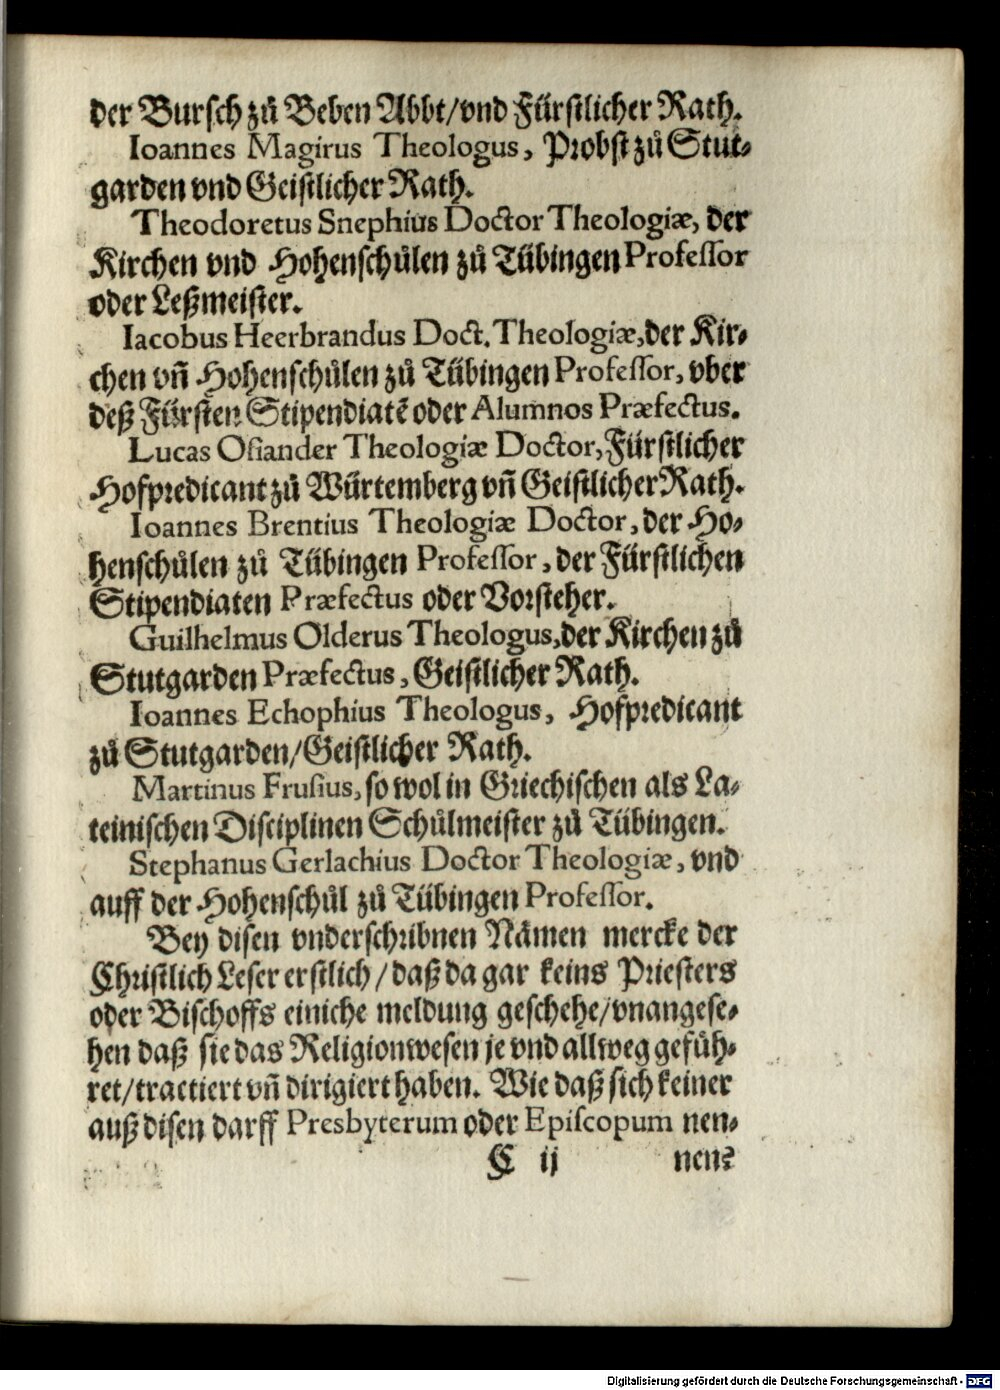 der Bursch zů Beben Abbt/vnd Fürstlicher Rath.
Ioannes Magirus Theologus, Probst zů Stut-
garden vnd Geistlicher Rath.
Theodoretus Snephius Doctor Theologiæ, der
Kirchen vnd Hohenschůlen zů Tübingen Professor
oder Leßmeister.
Iacobus Heerbrandus Doct. Theologiæ, der Kir-
chen vñ Hohenschůlen zů Tübingen Professor, vber
deß Fürsten Stipendiatẽ oder Alumnos Præfectus.
Lucas Osiander Theologiæ Doctor, Fürstlicher
Hofpredicant zů Würtemberg vñ Geistlicher Rath.
Ioannes Brentius Theologiæ Doctor, der Ho-
henschůlen zů Tübingen Professor, der Fürstlichen
Stipendiaten Præfectus oder Vorsteher.
Guilhelmus Olderus Theologus, der Kirchen zů
Stutgarden Præfectus, Geistlicher Rath.
Ioannes Echophius Theologus, Hofpredicant
zů Stutgarden/Geistlicher Rath.
Martinus Frusius, so wol in Griechischen als La-
teinischen Disciplinen Schůlmeister zů Tübingen.
Stephanus Gerlachius Doctor Theologiæ, vnd
auff der Hohenschůl zů Tübingen Professor.
Bey disen vnderschribnen Nämen mercke der
Christlich Leser erstlich/daß da gar keins Priesters
oder Bischoffs einiche meldung geschehe/vnangese-
hen daß sie das Religionwesen je vnd allweg gefüh-
ret/tractiert vñ dirigiert haben. Wie daß sich keiner
auß disen darff Presbyterum oder Episcopum nen-
C ij nen?
Digitalisierung gefördert durch die Deutsche Forschungsgemeinschaft - DFG